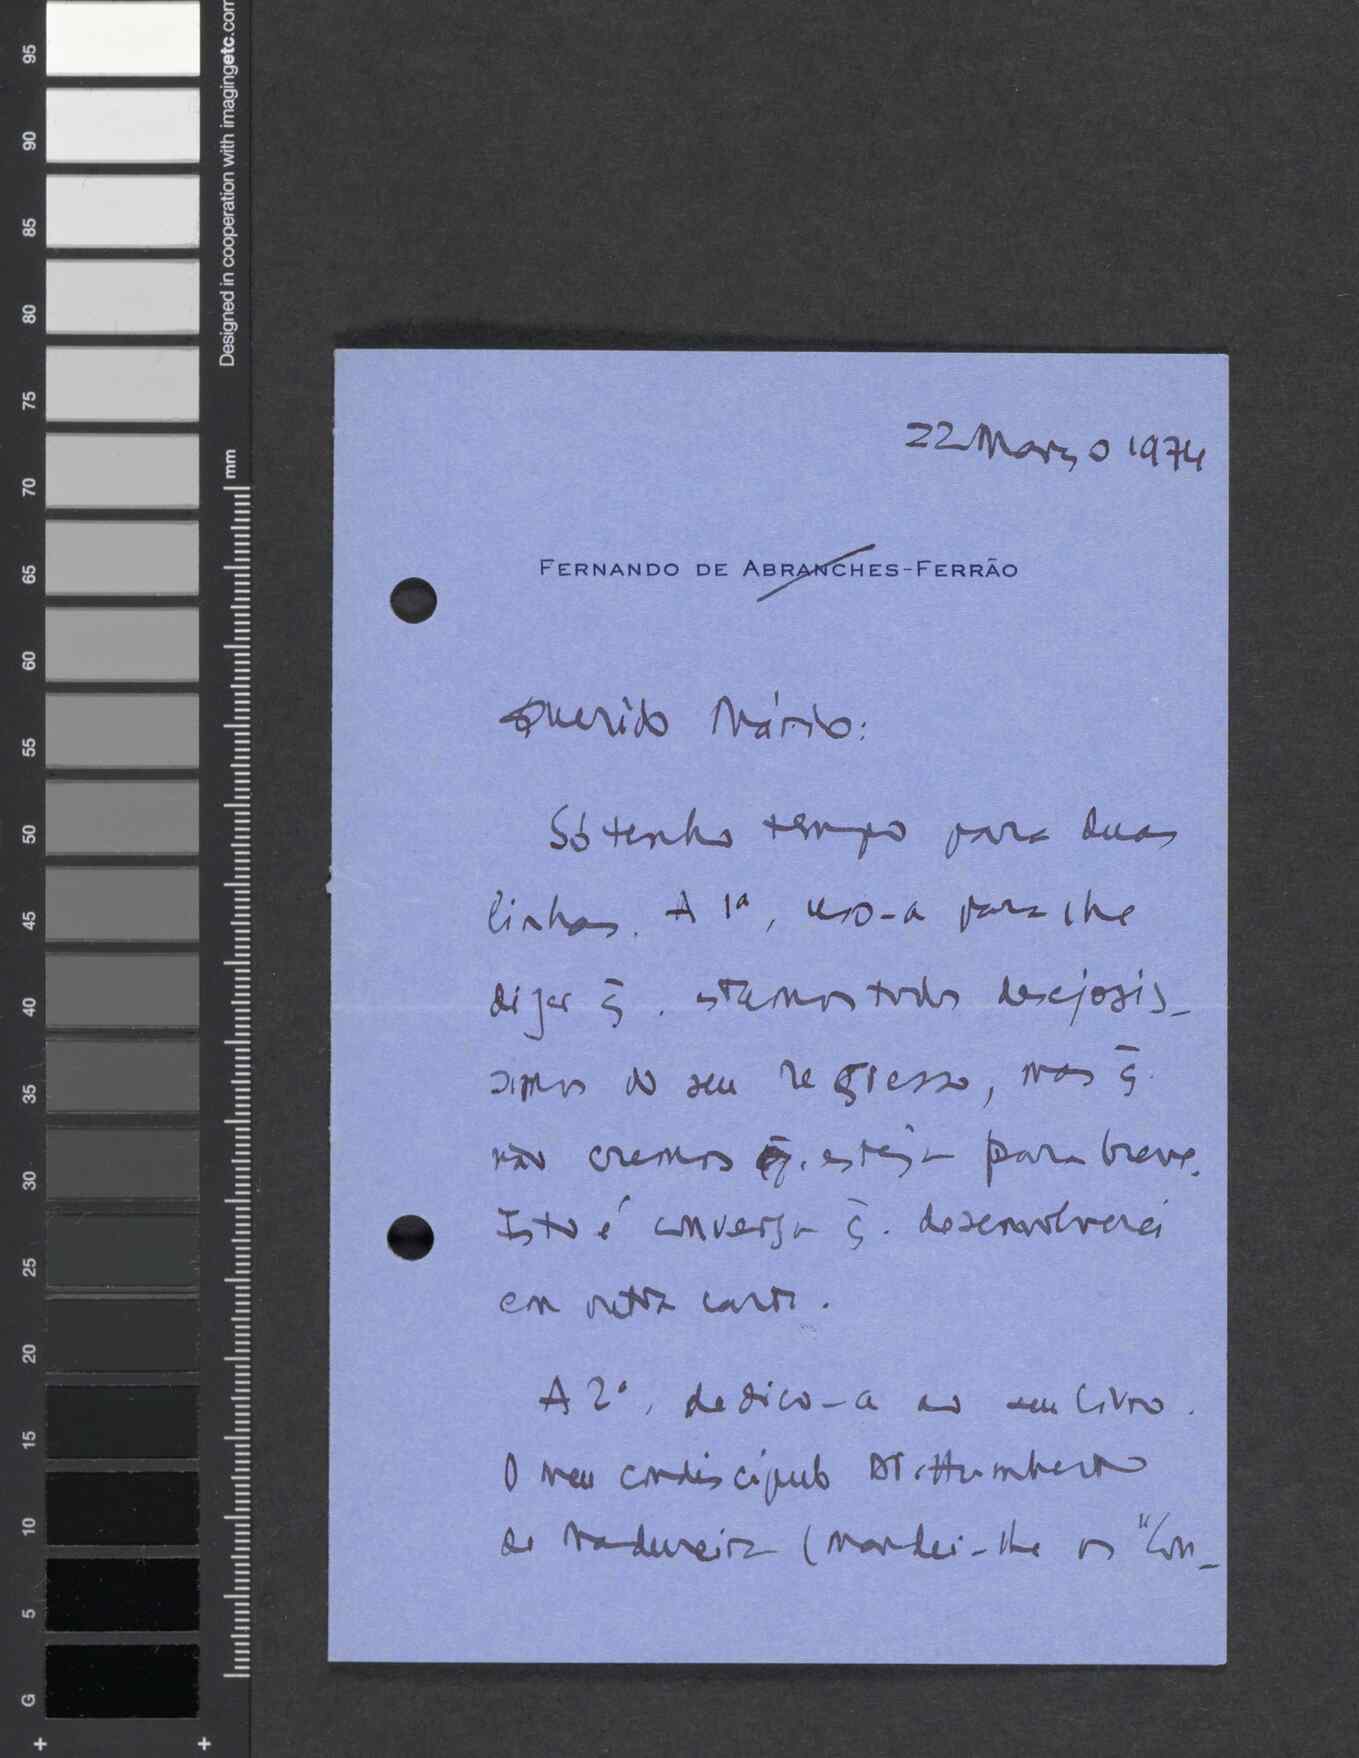 95
90
85
80
75
70
65
60
55
50
45
40
35
30
25
20
15
10
5
G
Designed in cooperation with imagingetc.com
mm
22 Março 1974
FERNANDO DE ABRANCHES-FERRÃO
Querido Mário:
Só tenho tempo para duas
linhas. A 1ª, uso-a para lhe
dizer q̄. estamos todos desejosís-
simos do seu regresso, mas q̄.
não cremos q̄. esteja para breve.
Isto é conversa q̄. desenvolverei
em outra carta.
A 2ª, dedico-a ao seu livro.
O meu condiscípulo Dr. Humberto
de Madureira (mandei-lhe os "Con-